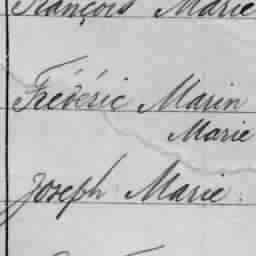 François Marie
Frédéric Marin
Marie
Joseph Marie